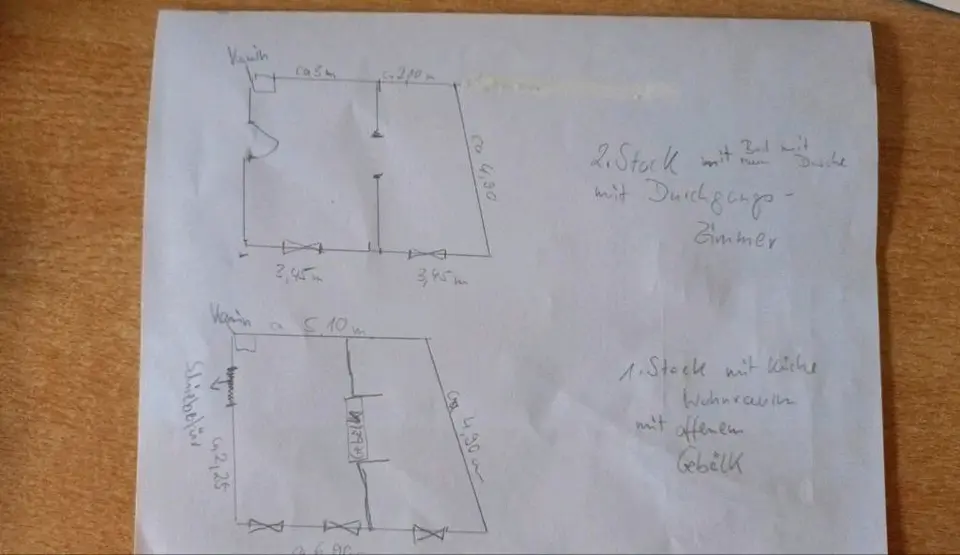 Kamin
ca 3 m
ca 2,10 m
ca 4,90
3,45 m
3,45 m
2. Stock mit Bad mit
Dusche
mit Durchgangs-
Zimmer
Kamin
ca 5,10 m
Schiebetür
ca 2,25
Gebälk
ca 4,90 m
1. Stock mit Küche
Wohnraum
mit offenem
Gebälk